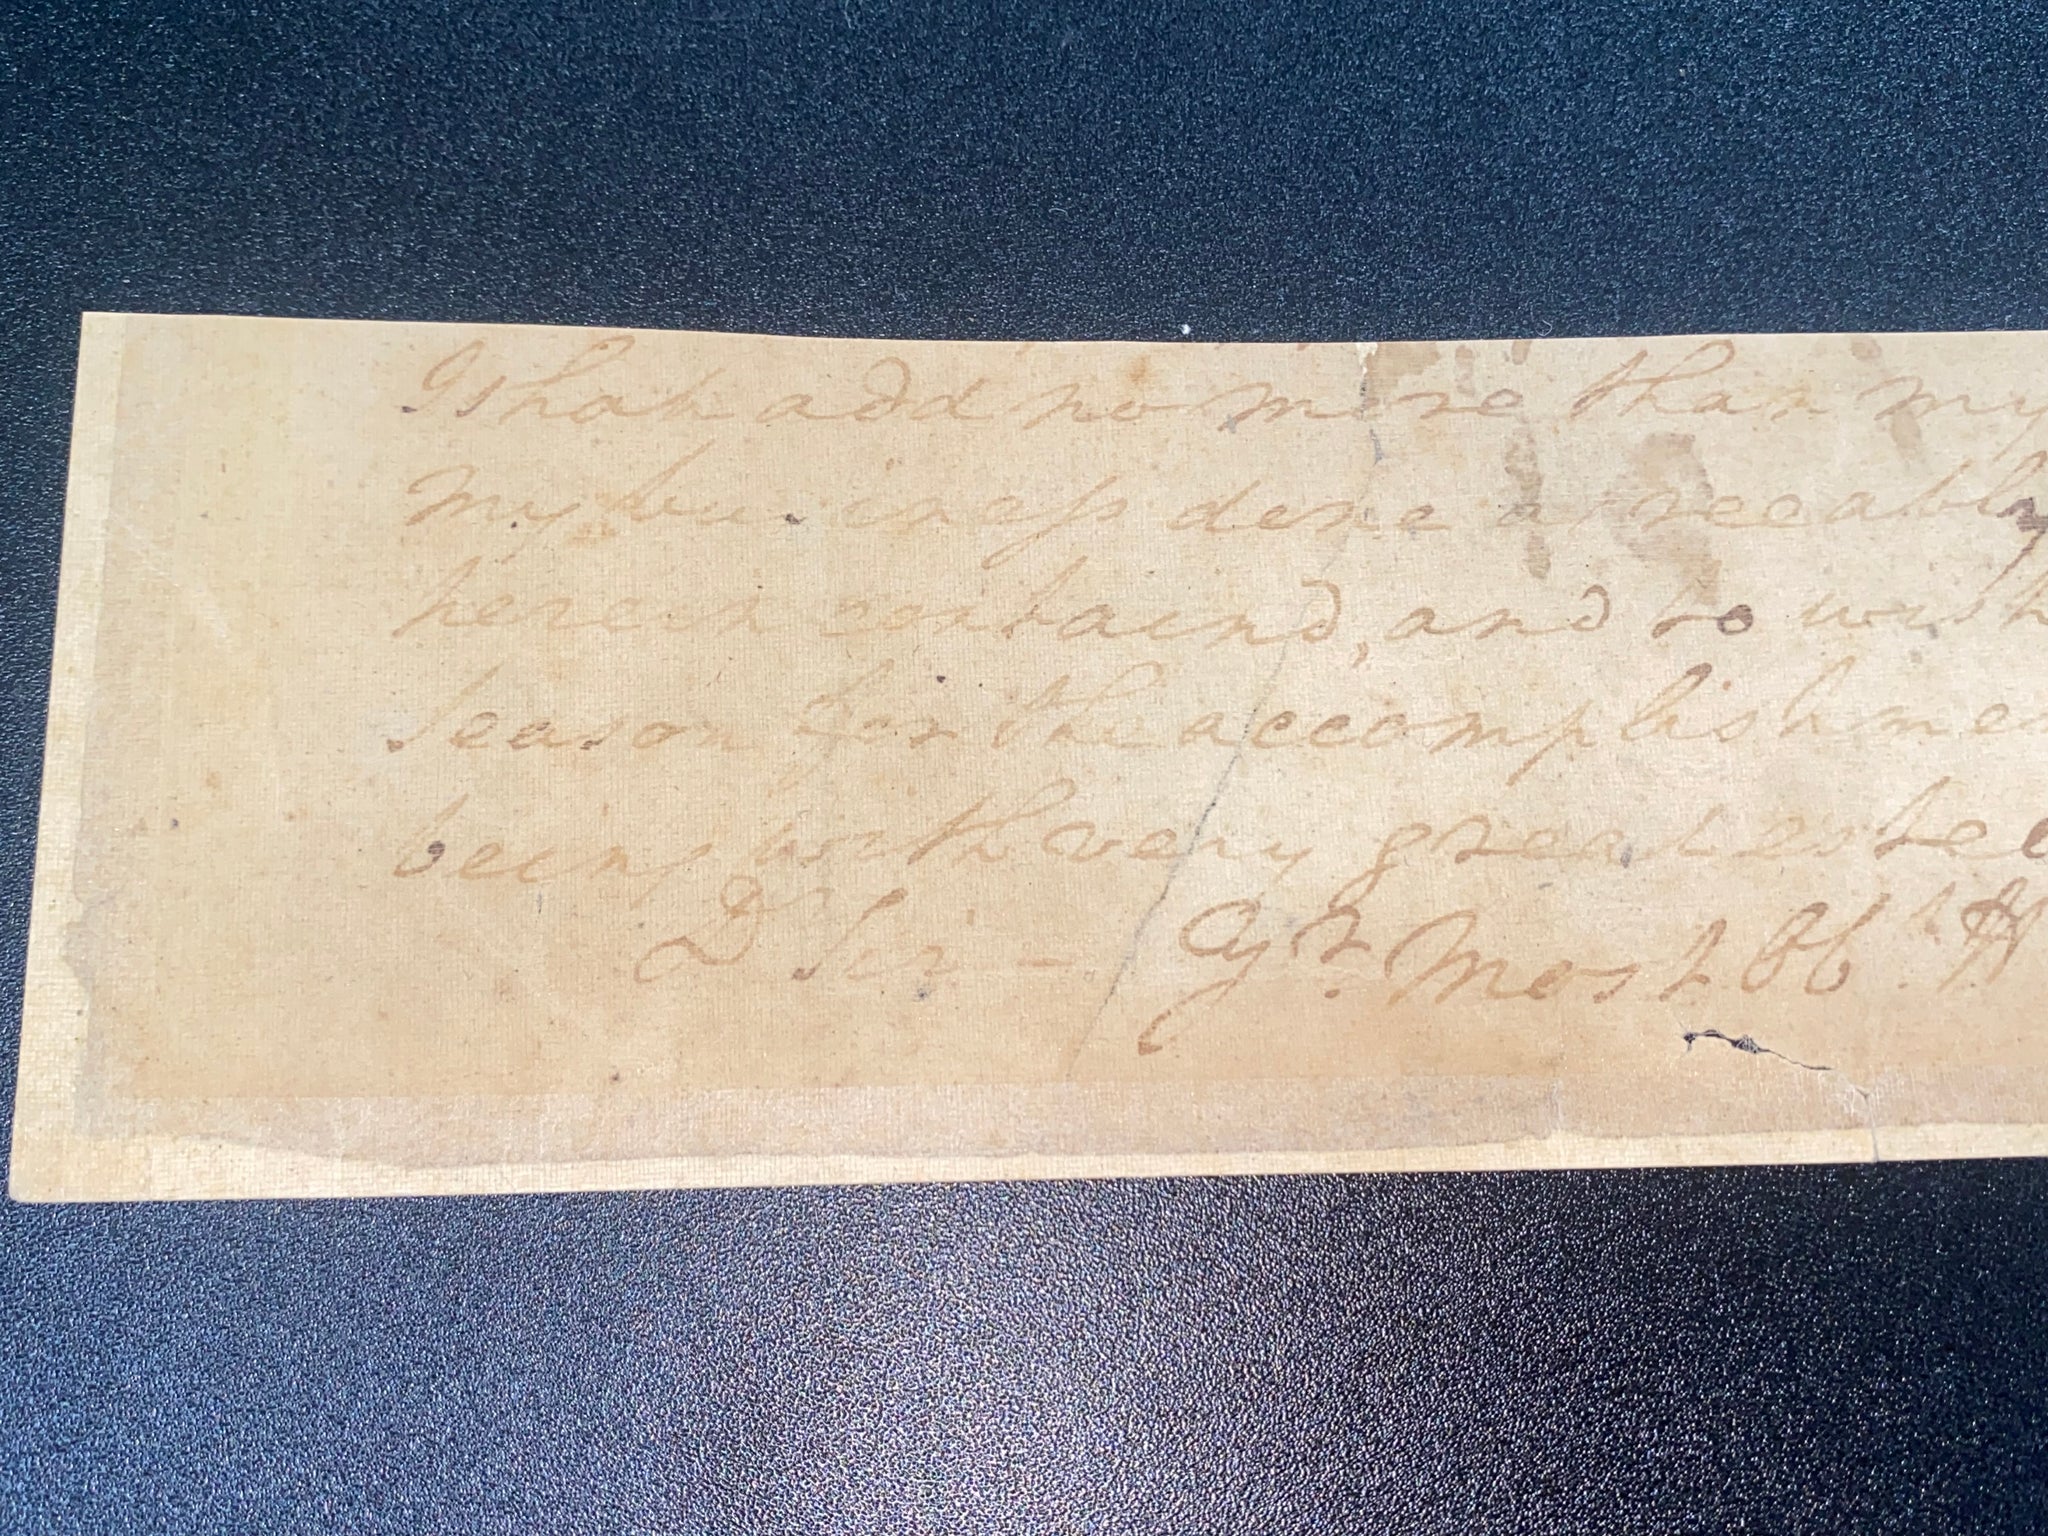 I shall add no more than my
my business done agreeably
herein containd, and to wish
Season for the accomplishmen
being with very great estee
Dr Sir – Yr. Most Obt. H